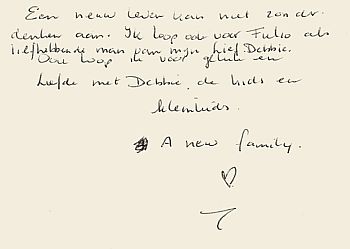 Een nieuw leven kan niet zonder
denken aan. Ik loop ook voor Fulco als
liefhebbende man van mijn lief Debbie.
Ook loop ik voor geluk en
liefde met Debbie, de kids en
kleinkids.
A new family.
♡